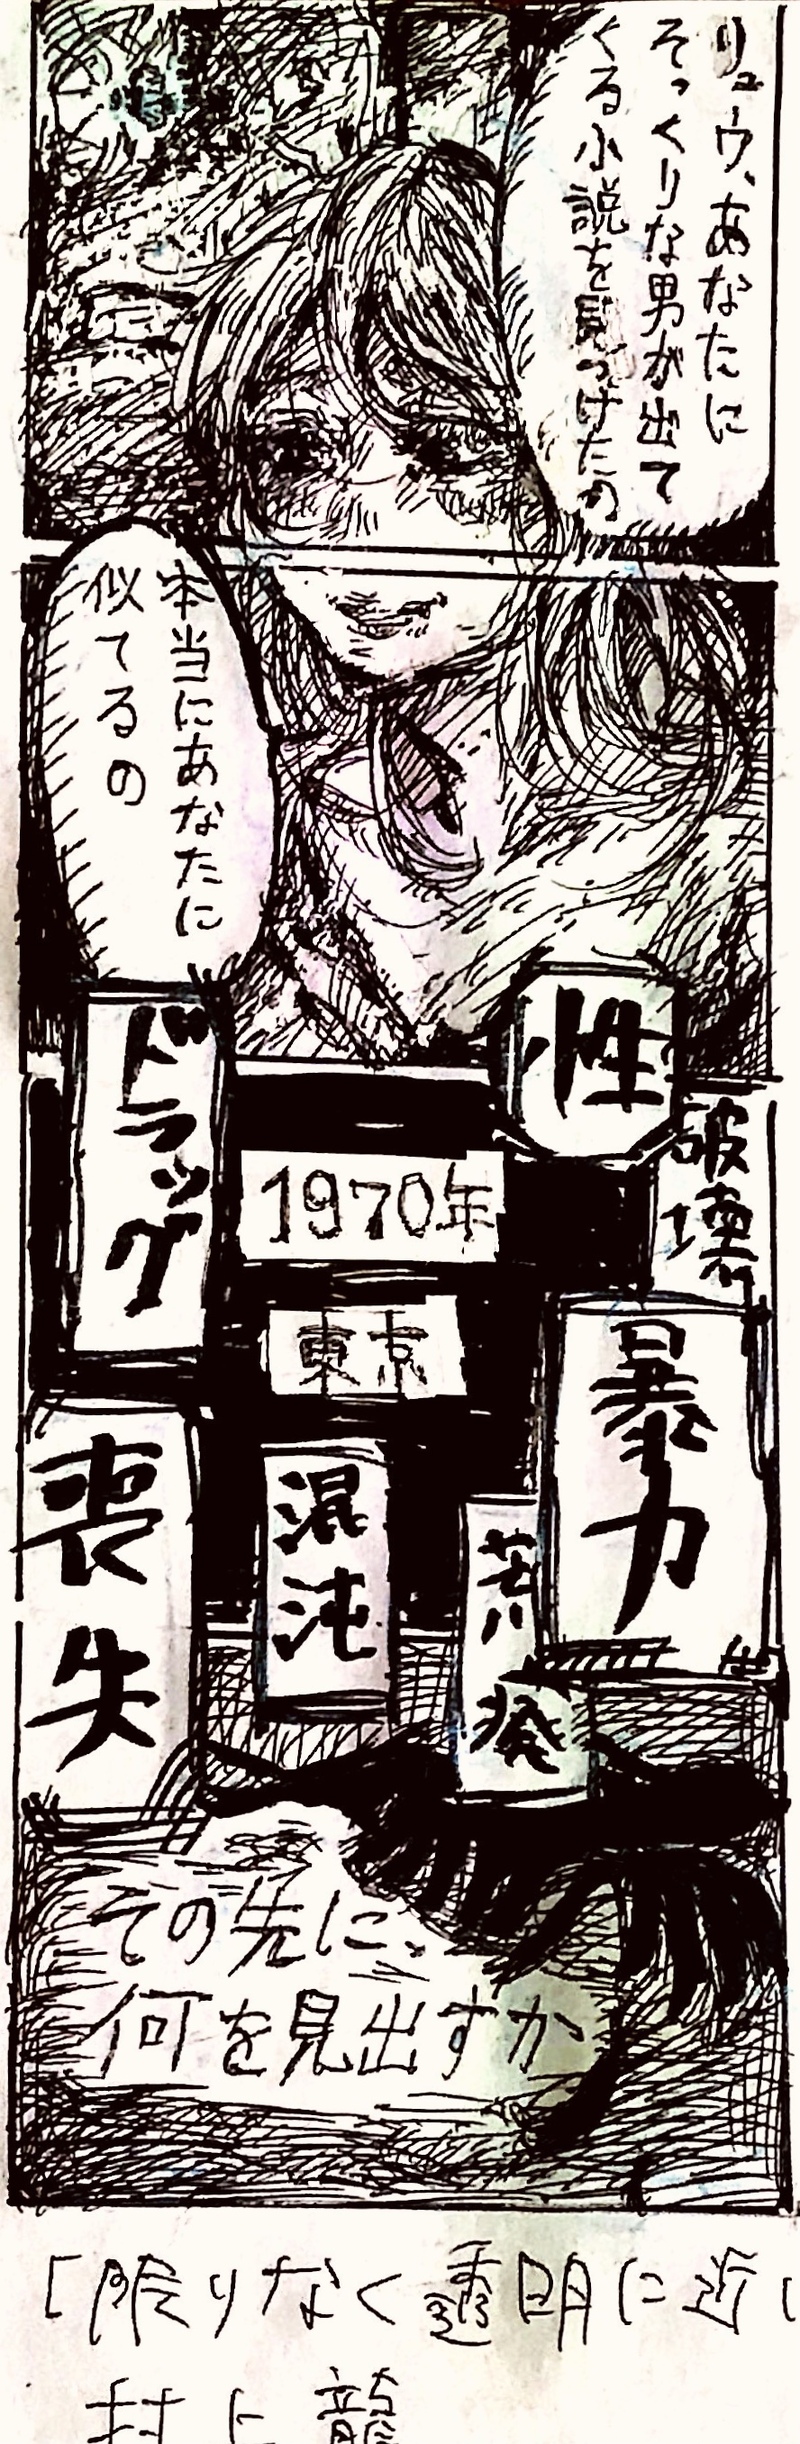 リュウ、あなたに
そっくりな男が出て
くる小説を見つけたの
本当にあなたに
似てるの
性
ドラッグ
破壊
1970年
東京
暴力
喪失
混沌
荒廃
その先に、
何を見出すか
「限りなく透明に近い
村上龍